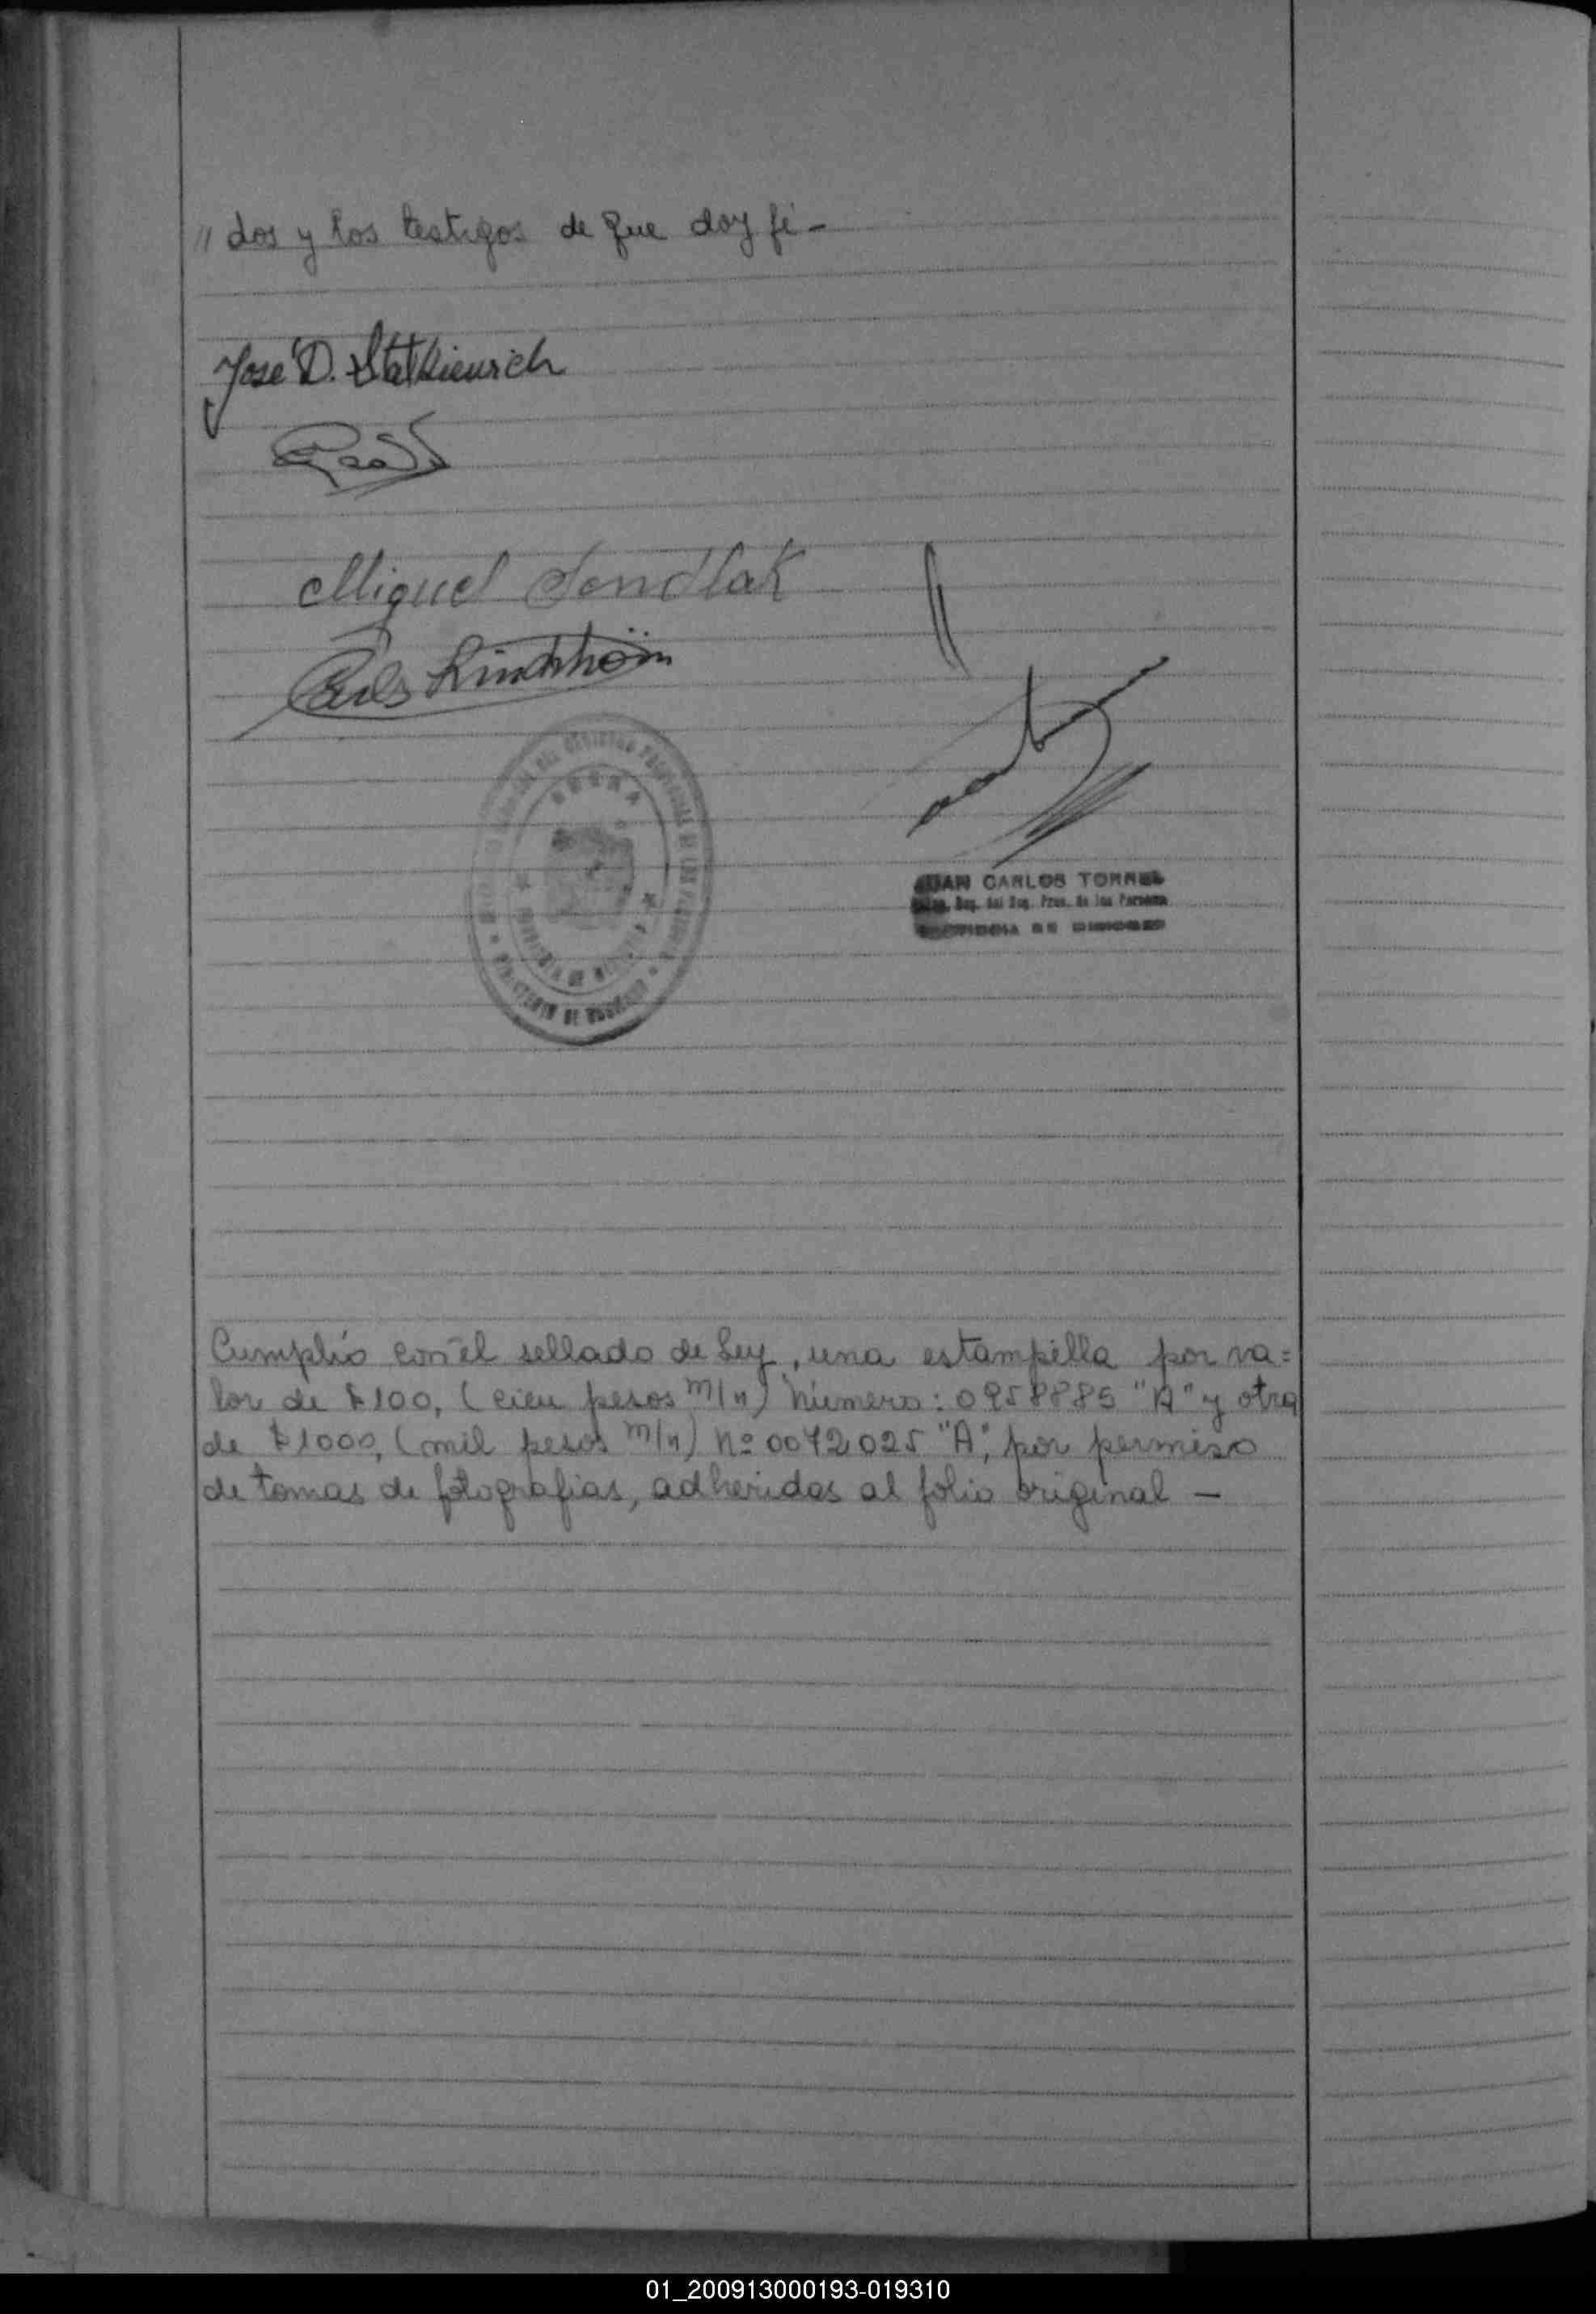 // dos y los testigos de que doy fé -
José D. Statkieurich
Miguel Sendlak
Carlos
OBERA
JUAN CARLOS TORRES
Enc. Reg. del Reg. Prov. de las Personas
PROVINCIA DE MISIONES
Cumplió con el sellado de Ley, una estampilla por va=
lor de $100, (cien pesos m/n) número: 0958885 "A" y otra
de $1000, (mil pesos m/n) nº 0072025 "A", por permiso
de tomas de fotografias, adheridas al folio original —
01_200913000193-019310